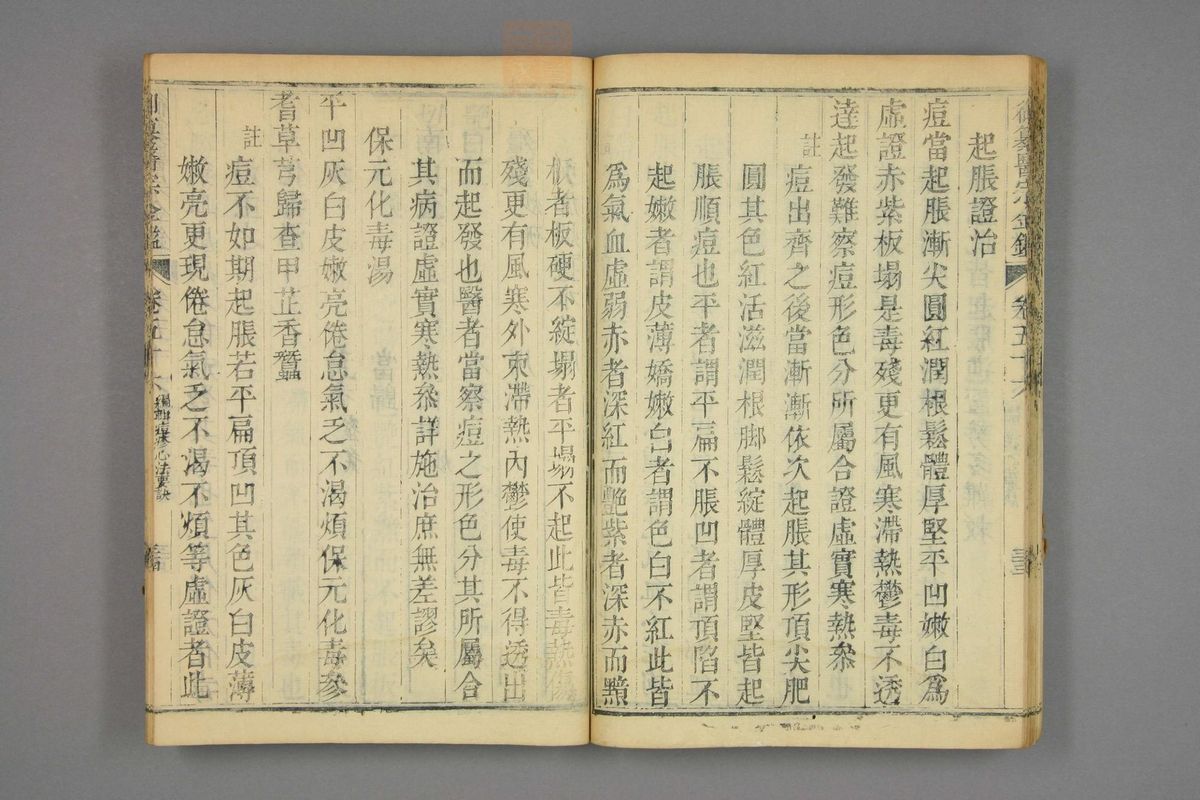 御纂醫宗金鑑 卷五十六
起脹證治
痘當起脹漸尖圓紅潤根鬆體厚堅平凹嫩白爲
虛證赤紫板塌是毒殘更有風寒滯熱鬱毒不透
達起發難察痘形色分所屬合證虛實寒熱叅
註 痘出齊之後當漸漸依次起脹其形頂尖肥
圓其色紅活滋潤根脚鬆綻體厚皮堅皆起
脹順痘也平者謂平扁不脹凹者謂頂陷不
起嫩者謂皮薄嬌嫩白者謂色白不紅此皆
爲氣血虛弱赤者深紅而艷紫者深赤而黯
板者板硬不綻塌者平塌不起此皆毒熱傷
殘更有風寒外束滯熱內鬱使毒不得透出
而起發也醫者當察痘之形色分其所屬合
其病證虛實寒熱叅詳施治庶無差謬矣
保元化毒湯
平凹灰白皮嫩亮倦怠氣乏不渴煩保元化毒參
耆草芎歸查甲芷香蠶
註 痘不如期起脹若平扁頂凹其色灰白皮薄
嫩亮更現倦怠氣乏不渴不煩等虛證者此
御纂醫宗金鑑 卷五十六 編輯痘疹心法要訣